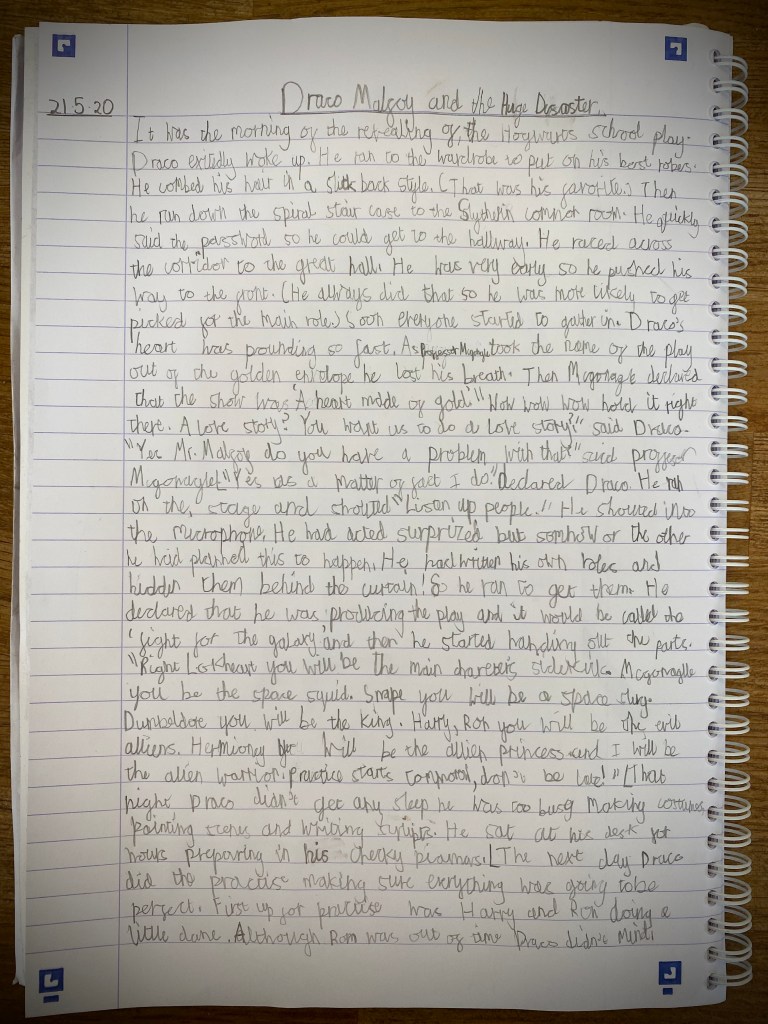 Draco Malfoy and the Huge Disaster.
21.5.20
It was the morning of the revealing of, the Hogwarts school play.
Draco exitedly woke up. He ran to the wardrobe to put on his best robes.
He combed his hair in a slick back style. (That was his favorite.) Then
he run down the spiral stair case to the Slytherin common room. He quickly
said the password so he could get to the hallway. He raced across
the corridor to the great hall. He was very early so he pushed his
way to the front. (He always did that so he was more likely to get
picked for the main role.) Soon everyone started to gather in. Draco's
heart was pounding so fast. As took the name of the play
out of the golden envelope he lost his breath. Then Mcgonagle declared
that the show was 'A heart made of gold' "Wow wow wow hold it right
there. A love story? You want us to do a love story?" said Draco.
"Yes Mr. Malfoy do you have a problem with that" said proffesor
Mcgonagle. [ "Yes as a matter of fact I do." declared Draco. He ran
on the, stage and shouted "Listen up people." He shouted into
the microphone. He had acted surprized but somhow or the other
he had planned this to happen. He had written his own roles and
hidden them behind the curtain! So he ran to get them. He
declared that he was producing the play and it would be called the
'fight for the galaxy' and then he started handing out the parts.
"Right Lockheart you will be the main sidekick. Mcgonaglle
you be the space squid. Snape you will be a space slug.
Dumbeldore you will be the King. Harry, Ron you will be the evil
alliens. Hermioney will be the allien princess and I will be
the alien warrior. practice starts tommorow, don't be late!" [That
night Draco didn't get any sleep he was too busy making costumes
painting scenes and writing scripts. He sat at his desk for
hours preparing in his cheeky pijamas. [The next day Draco
did the practise making sure everything was going tobe
perfect. First up for practise was Harry and Ron doing a
little dance. Although Ron was out of time Draco didn't mind.